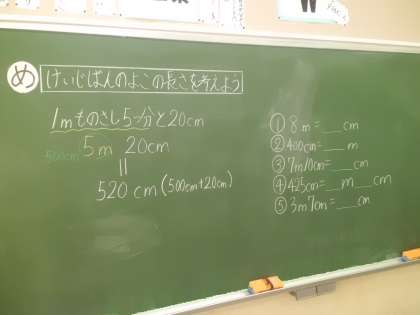 め けいじばんのよこの長さを考えよう
1mものさし5つ分と20cm
500cm 5m 20cm
||
520cm(500cm+20cm)
① 8m=__cm
② 400cm=__m
③ 7m10cm=__cm
④ 425cm=__m__cm
⑤ 3m7cm=__cm